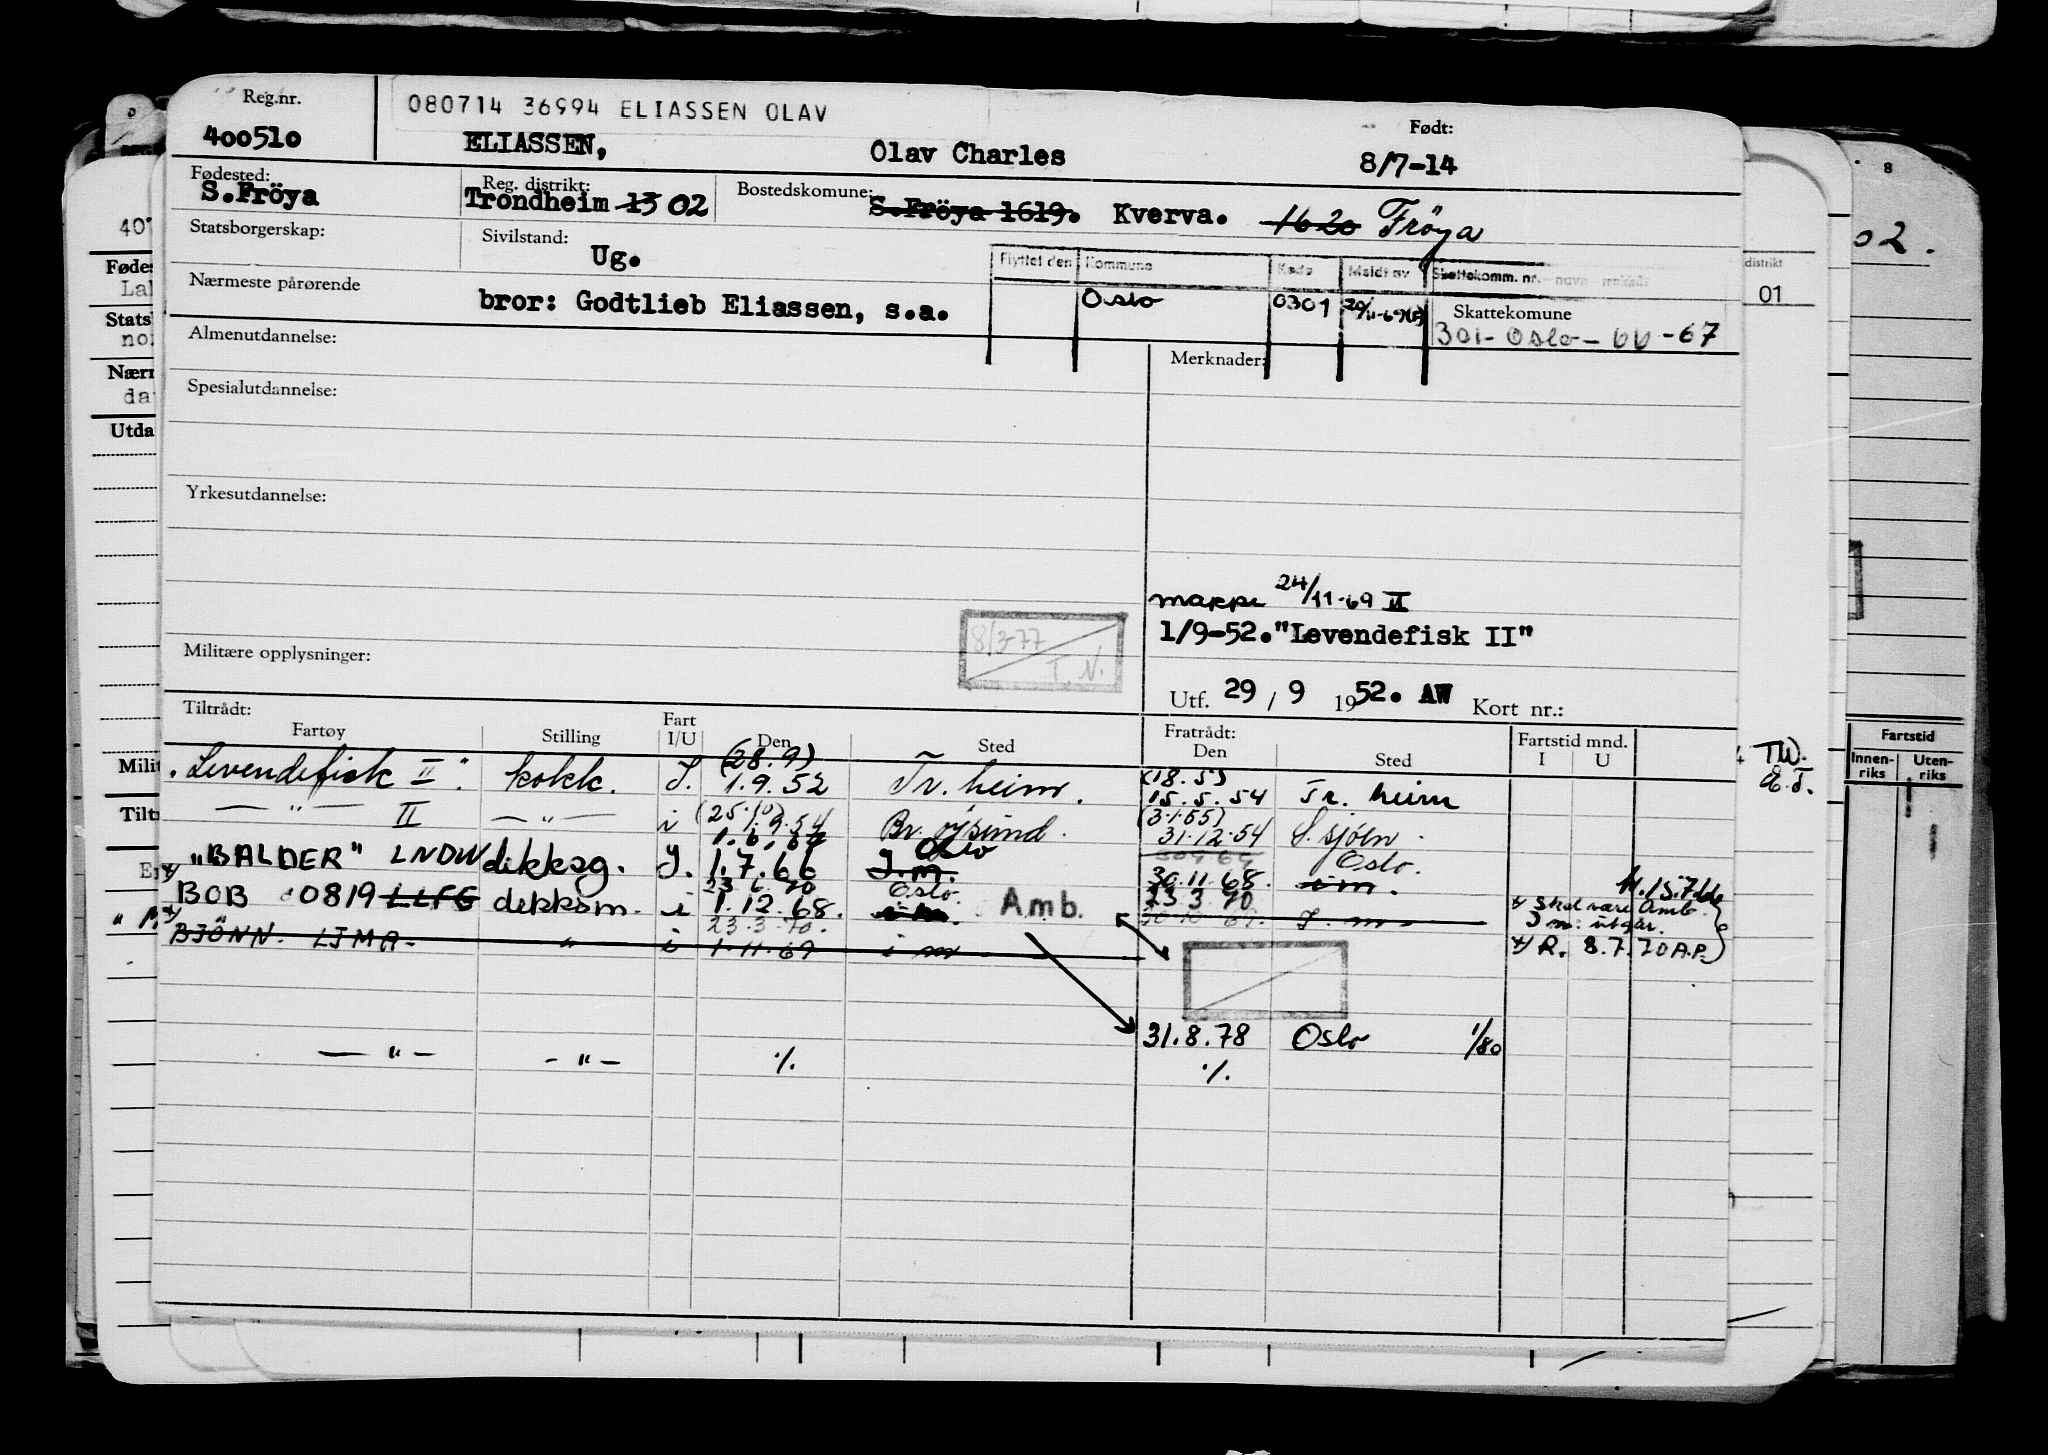 Reg.nr.
400510
080714 36994 ELIASSEN OLAV
ELIASSEN, Olav Charles
Født:
8/7-14
Fødested:
S.Fröya
Reg. distrikt:
Trondheim 13 02
Bostedskomune:
S.Fröya 1619. Kverva. 1620 Fröya
Statsborgerskap:
Sivilstand:
Ug.
Flyttet den Kommune Kode Meldt av Skattekomm. nr.
Oslo 0301
Nærmeste pårørende
bror: Godtlieb Eliassen, s.a.
Skattekomune
301-Oslo-66-67
Almenutdannelse:
Merknader:
Spesialutdannelse:
Yrkesutdannelse:
mappe 24/11-69
1/9-52."Levendefisk II"
8/3-77
T.N.
Militære opplysninger:
Utf. 29 / 9 1952. AW Kort nr.:
Tiltrådt:
Fartøy Stilling Fart I/U Den Sted
Fratrådt:
Den Sted Fartstid mnd.
I U
(28.9) (18.5)
"Levendefisk II". kokk. I. 1.9.52 Tr.heim. 15.5.54 Tr. heim
(25.10) (3.1.55)
— " — II — " — i 1.9.54 31.12.54
Oslo
"BALDER" LNDW dekksg. I. 1.7.66 I.m. 30.11.68. Oslo. i m.
23 6 70 Oslo. 23 3 70
BOB 0819 LLFG dekksm. i 1.12.68. Amb. I. m
* Skal være Amb.
I m: utgår.
23.3.70.
BJÖNN. LJMA - " i 1.11.69 i m
* R. 8.7.70 A.P.
31.8.78 Oslo 1/80
— " — - " - ./. ./.
Fødes
Stats
Nærm
Utda
Milit
Tiltr
distrikt
01
02.
8
TW.
Fartstid
Innen-
riks
Uten-
riks